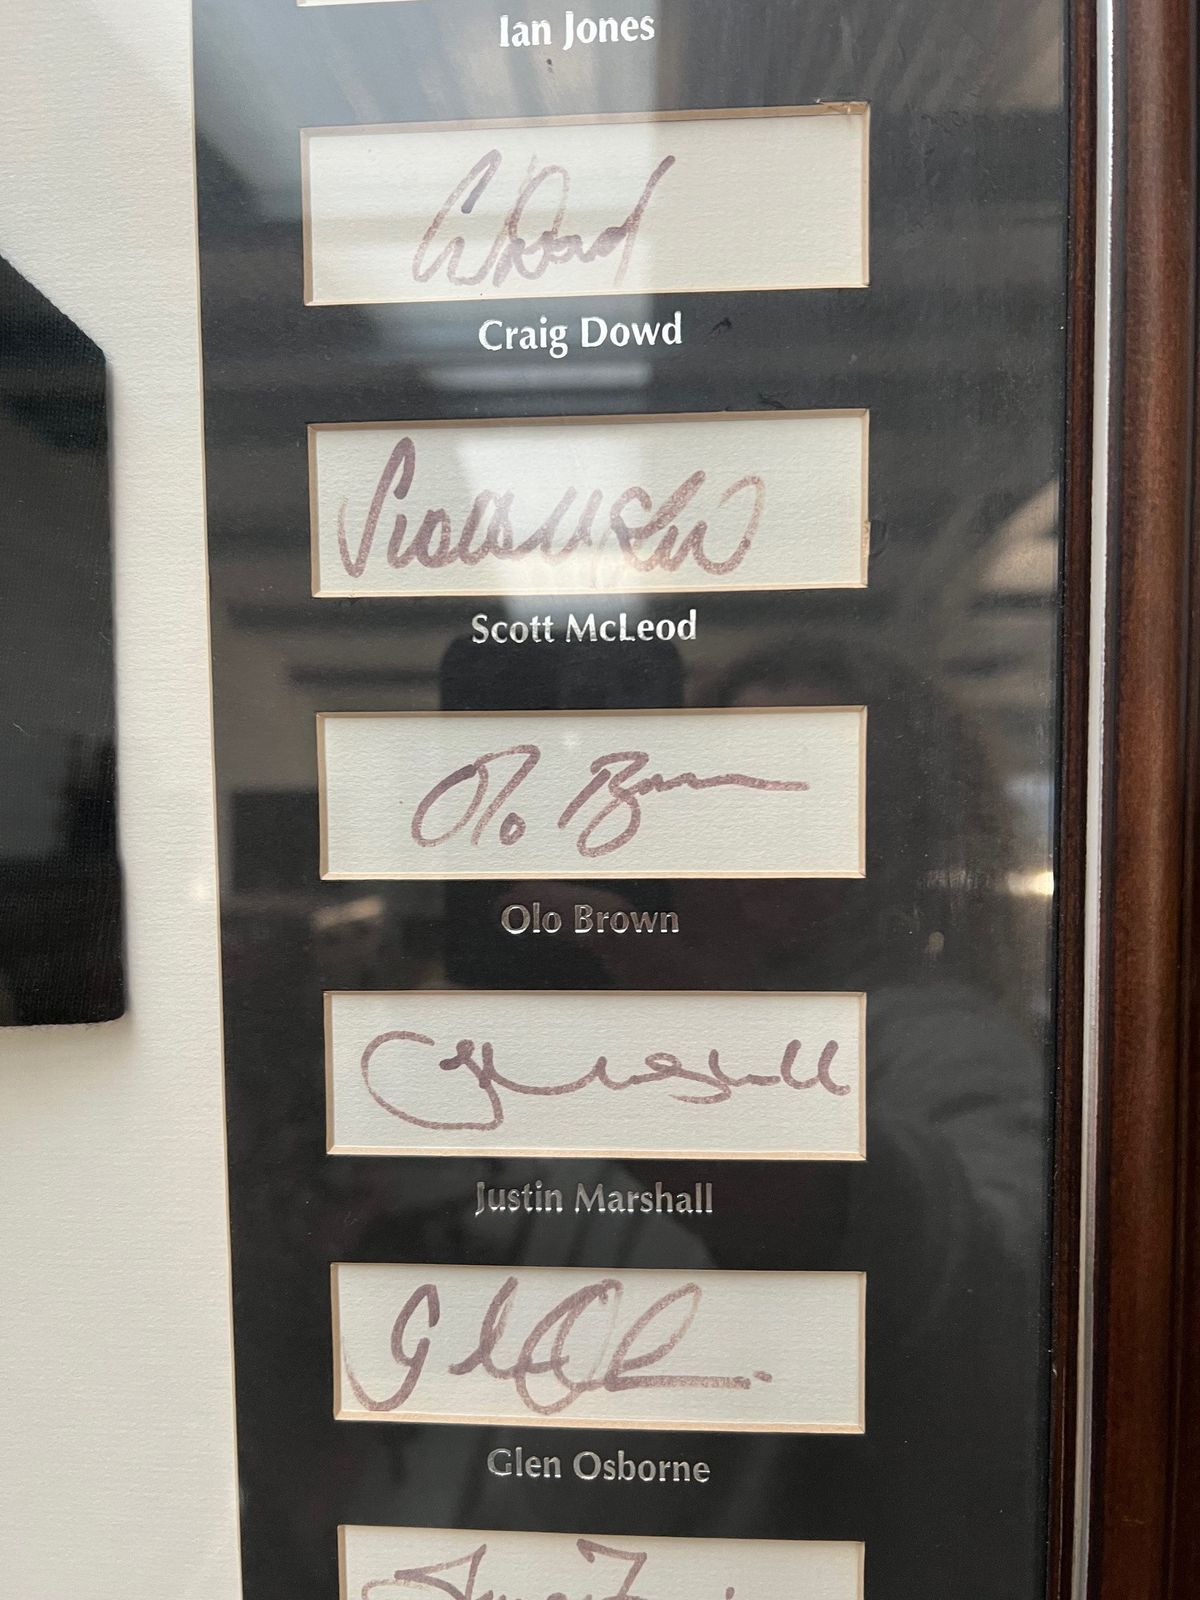 Ian Jones
C Dowd
Craig Dowd
Scott McLeod
Olo Brown
Olo Brown
Justin Marshall
Glen Osborne